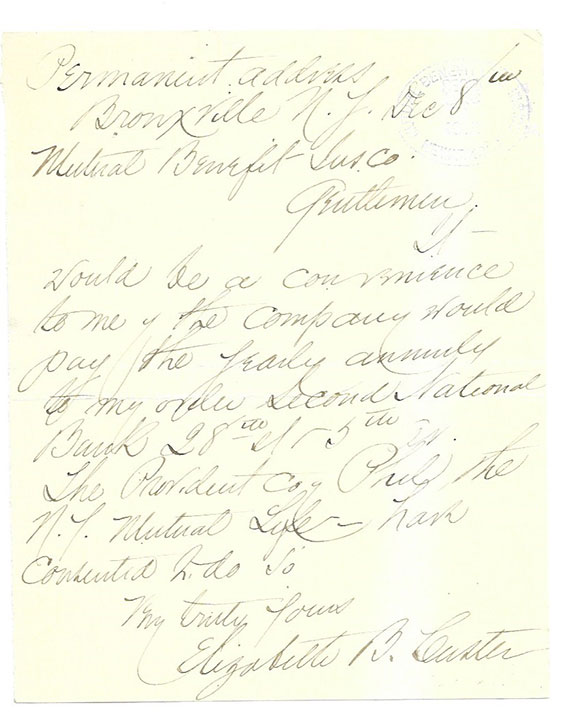 Permanent address
Bronxville N.Y. Dec 8th
Mutual Benefit Ins. co.
Gentlemen.
It
would be a convenience
to me if the company would
pay the yearly annuity
to my order Second National
Bank 28th st - 5th av.
The Provident Co of Phil, the
N.Y. Mutual Life - have
consented to do so
Very truly yours
Elizabeth B. Custer